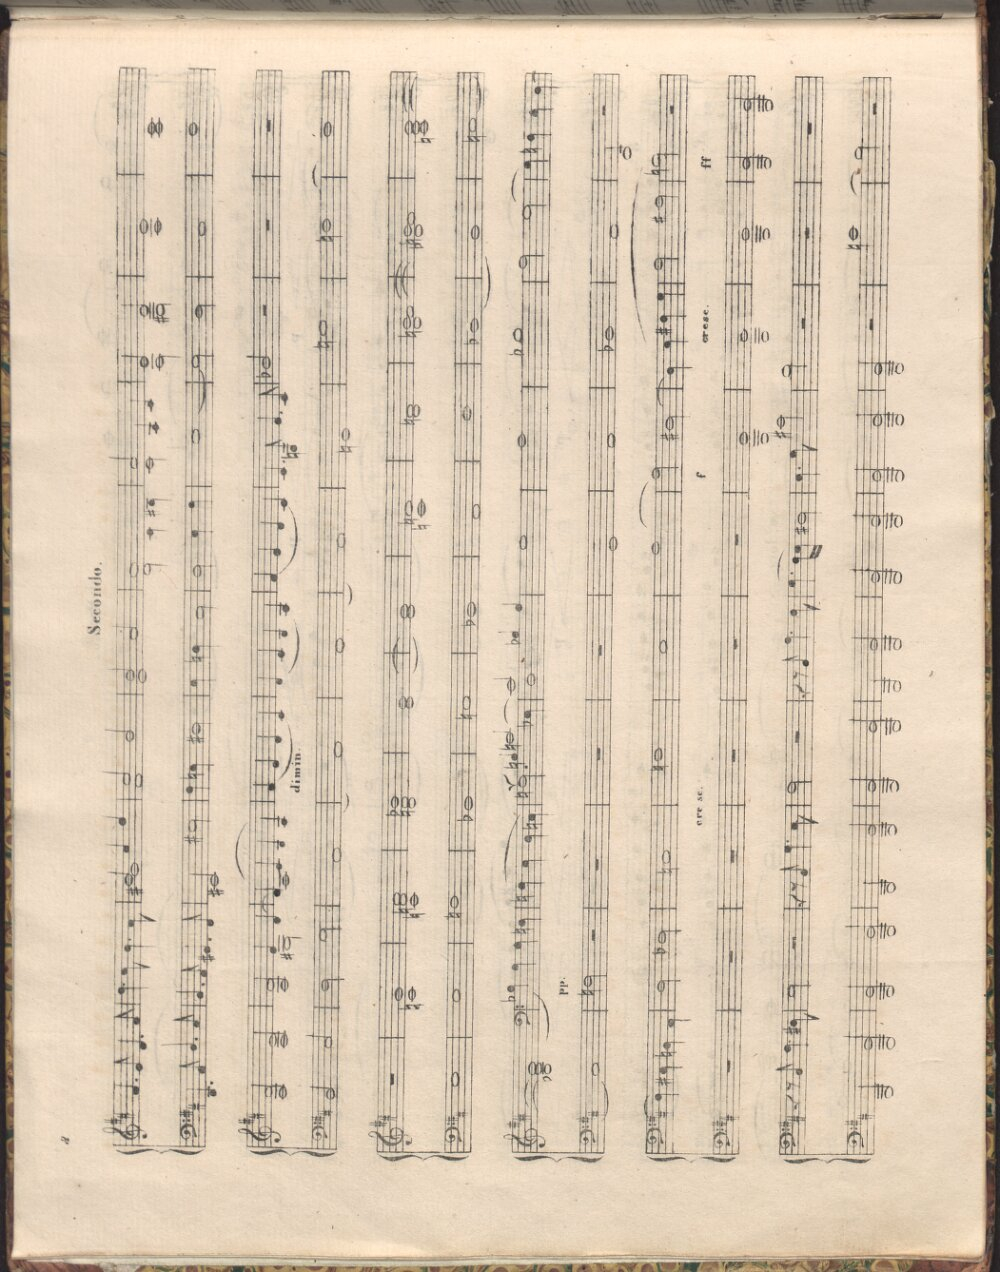 8
Secondo.
dimin.
pp.
f
cresc.
ff
cre sc.